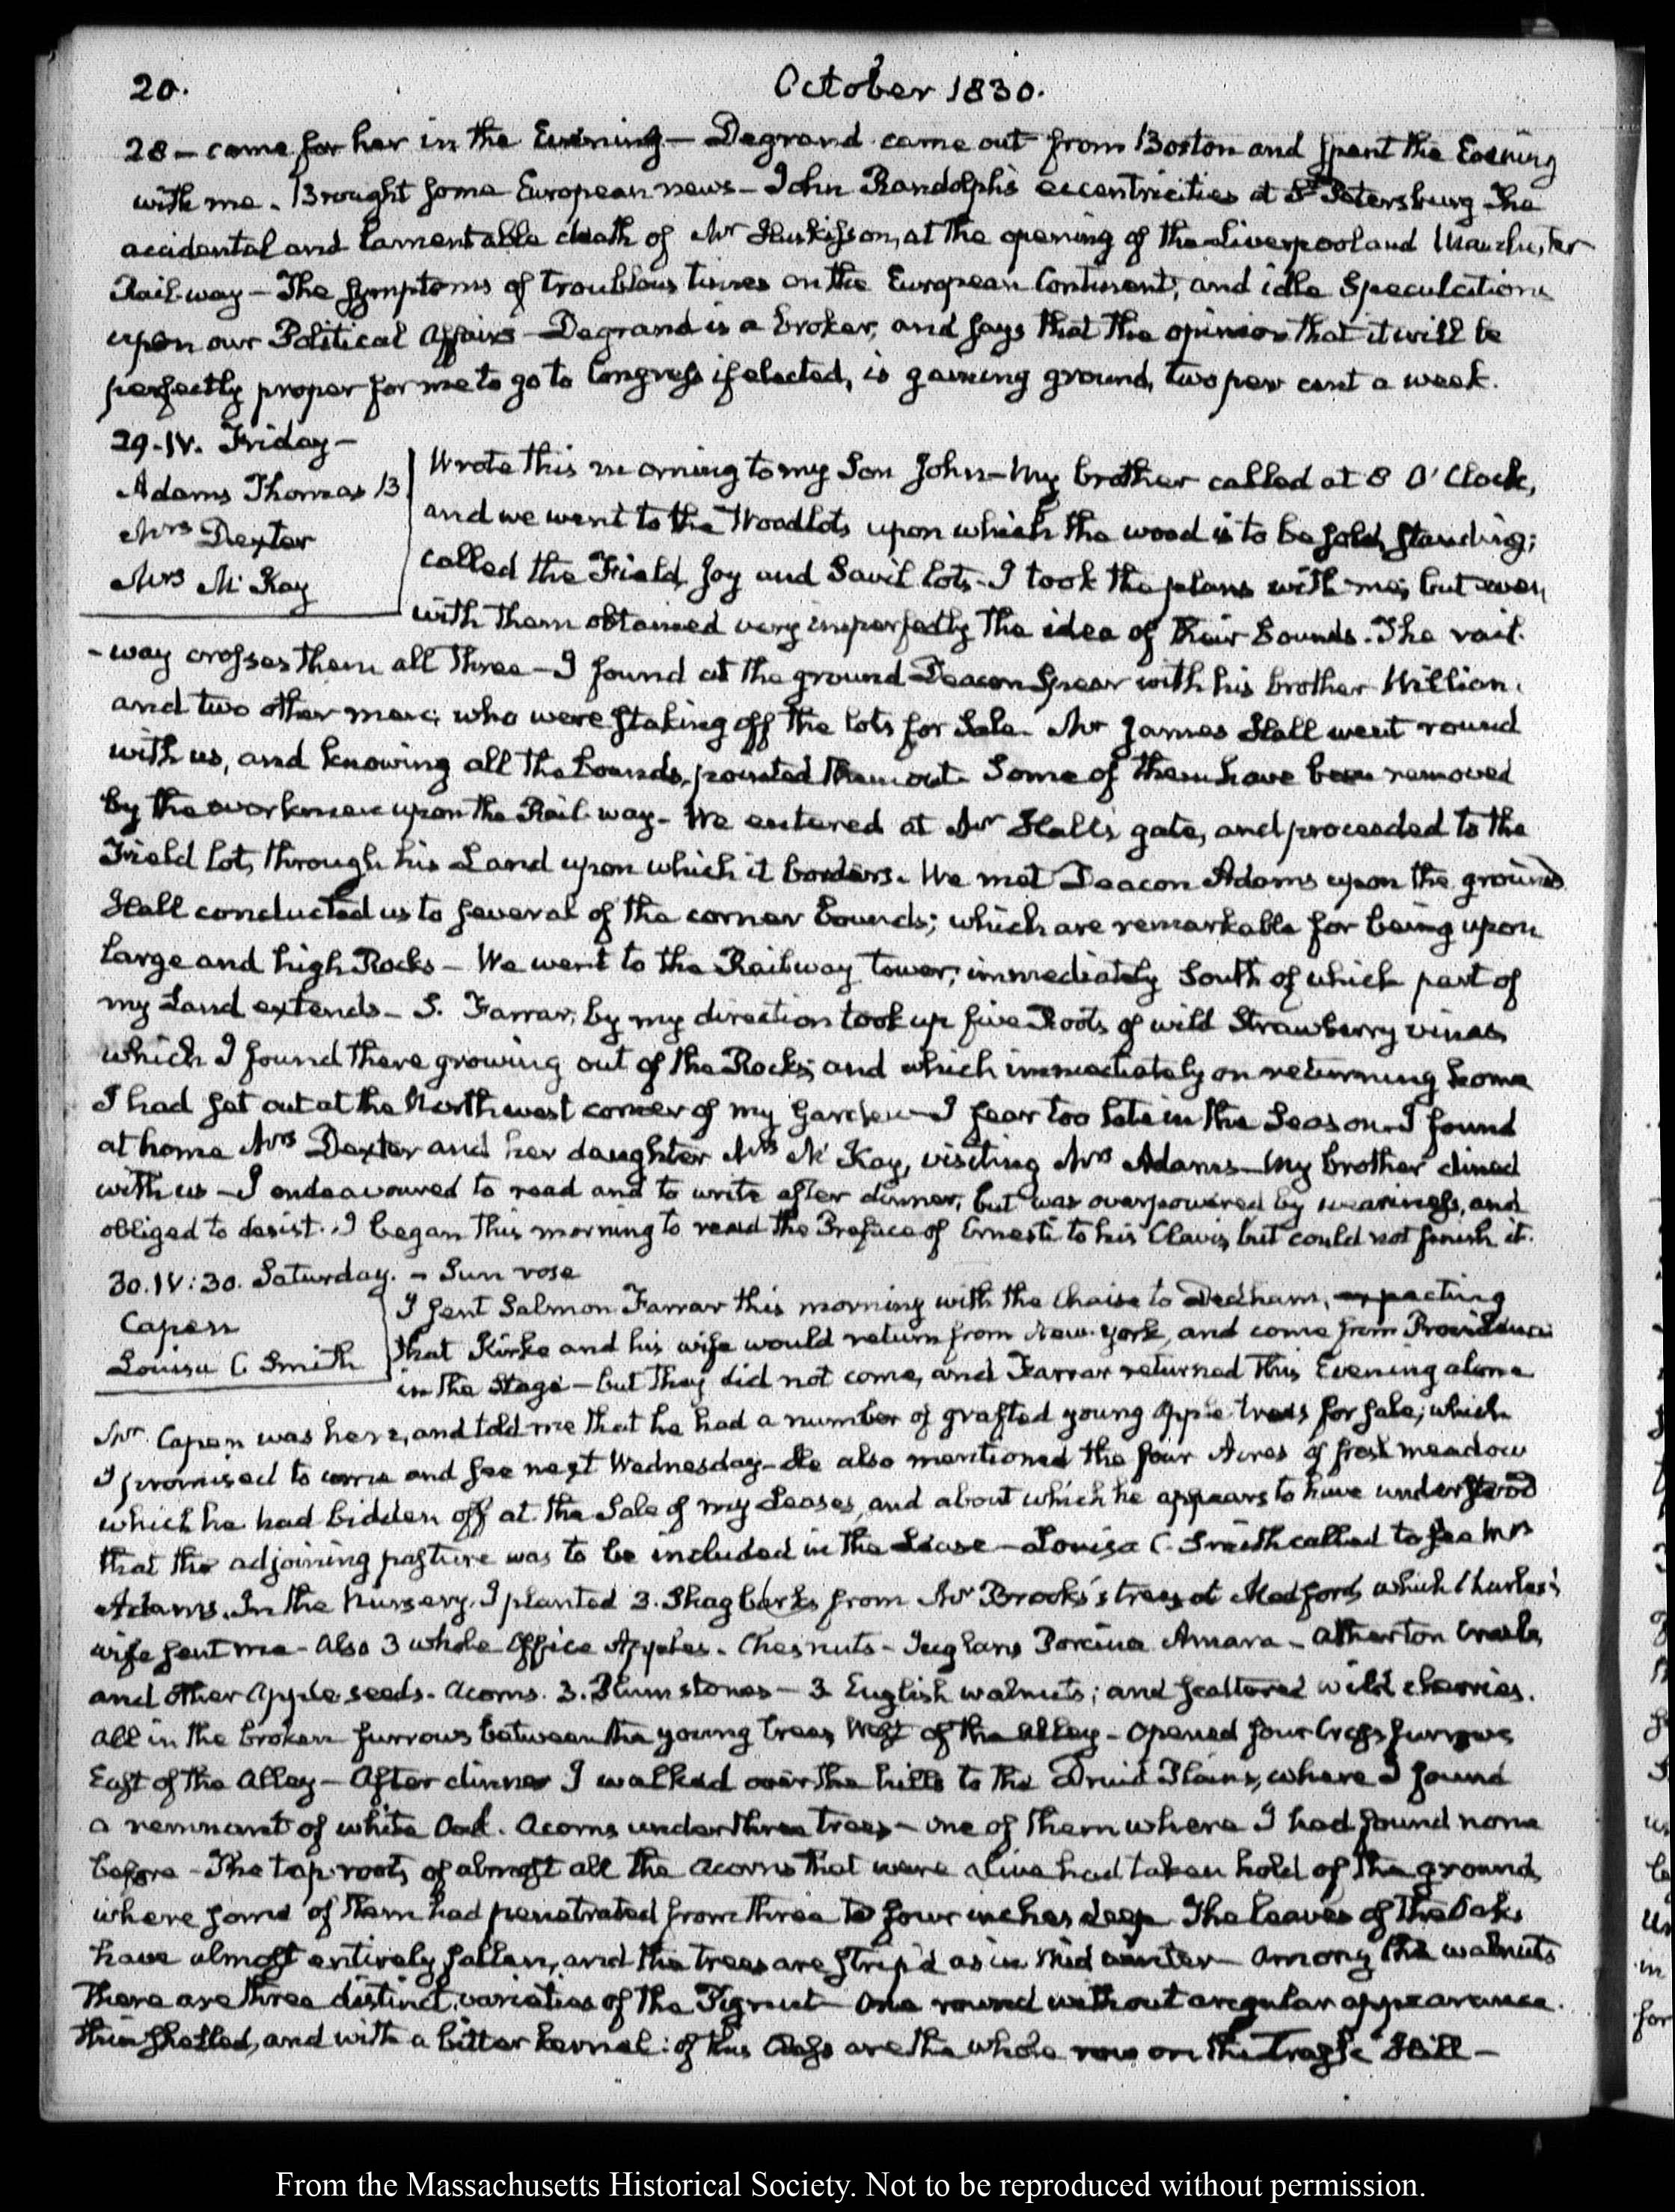 20.
October 1830.
28 – came for her in the Evening – Degrand came out from Boston and spent the Evening
with me. Brought some European news – John Randolph's eccentricities at St Petersburg The
accidental and lamentable death of Mr Huskisson, at the opening of the Liverpool and Manchester
Rail-way – The symptoms of troublous times on the European Continent, and idle Speculations
upon our Political Affairs – Degrand is a broker, and says that the opinion that it will be
perfectly proper for me to go to Congress if elected, is gaining ground, two per cent a week.
29. IV. Friday –
Adams Thomas B
Mrs Dexter
Mrs McKay
Wrote this morning to my Son John – My brother called at 8 O'Clock,
and we went to the Woodlots upon which the wood is to be sold, standing;
called the Field, Joy and Savil lots – I took the plans with me, but even
with them obtained very imperfectly the idea of their bounds. The rail-
-way crosses them all three – I found at the ground Deacon Spear with his brother William,
and two other men; who were staking off the lots for Sale. Mr James Hall went round
with us, and knowing all the bounds, pointed them out. Some of them have been removed
by the workmen upon the Rail-way – We entered at Mr Hall's gate, and proceeded to the
Field lot, through his Land upon which it borders. We met Deacon Adams upon the ground
Hall conducted us to several of the corner bounds; which are remarkable for being upon
large and high Rocks – We went to the Railway tower; immediately South of which part of
my Land extends – S. Farrar, by my direction took up five Roots of wild Strawberry vines
which I found there growing out of the Rocks; and which immediately on returning home
I had set out at the Northwest corner of my Garden – I fear too late in the Season. I found
at home Mrs Dexter and her daughter Mrs McKay, visiting Mrs Adams – My brother dined
with us – I endeavoured to read and to write after dinner, but was overpowered by weariness, and
obliged to desist. I began this morning to read the Preface of Ernesti to his Clavis but could not finish it.
30. IV:30. Saturday. – Sun rose
Capen
Louisa C Smith
I sent Salmon Farrar this morning with the Chaise to Dedham, expecting
that Kirke and his wife would return from New-York, and come from Providence
in the Stage – but they did not come, and Farrar returned this Evening alone
Mr Capen was here, and told me that he had a number of grafted young Apple trees for sale; which
I promised to come and see next Wednesday – He also mentioned the four Acres of fresh meadow
which he had bidden off at the Sale of my Leases, and about which he appears to have understood
that the adjoining pasture was to be included in the Lease – Louisa C. Smith called to see Mrs
Adams. In the Nursery. I planted 3. Shagbarks from Mr Brooks's trees at Medford, which Charles's
wife sent me – Also 3 whole Office Apples. Chesnuts – Juglans Porcina Amara – Atherton Crabs,
and other Apple seeds. Acorns. 3. Plumstones – 3 English walnuts; and scattered wild cherries.
All in the broken furrows between the young trees, West of the Alley – Opened four cross furrows
East of the Alley – After dinner I walked over the hills to the Druid Plains, where I found
a remnant of white Oak. Acorns under three trees – one of them where I had found none
before – The tap-roots of almost all the Acorns that were alive had taken hold of the ground
where some of them had penetrated from three to four inches deep. The leaves of the Oaks
have almost entirely fallen, and the trees are strip'd as in Mid winter – Among the walnuts
There are three distinct varieties of the Pignut – One round without angular appearance.
thin shelled, and with a bitter kernel: of this Class are the whole row on the Hill –
From the Massachusetts Historical Society. Not to be reproduced without permission.